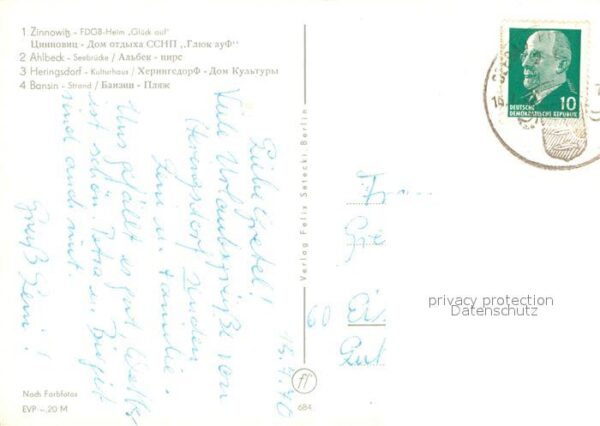 1 Zinnowitz - FDGB-Heim „Glück auf"
Цинновиц - Дом отдыха ССНП „Глюк ауф"
2 Ahlbeck - Seebrücke / Альбек - пирс
3 Heringsdorf - Kulturhaus / Херингсдорф - Дом Культуры
4 Bansin - Strand / Банзин - Пляж
DEUTSCHE
DEMOKRATISCHE REPUBLIK
10
Liebe Gretel!
Viele Urlaubsgrüße von
Heringsdorf senden
Leni u. Familie.
Uns gefällt es gut. Wetter
ist schön. Petra u. Birgit
sind auch mit.
Gruß Leni!
15.7.70
Verlag Felix Setecki, Berlin
60
privacy protection
Datenschutz
Nach Farbfotos
EVP -,20 M
684